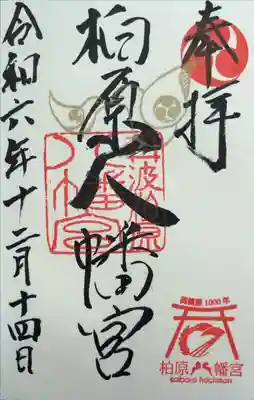 奉拝
柏原八幡宮
丹波柏原
八幡宮
令和六年十二月十四日
御鎮座 1000年
柏原八幡宮
kaibara hachiman